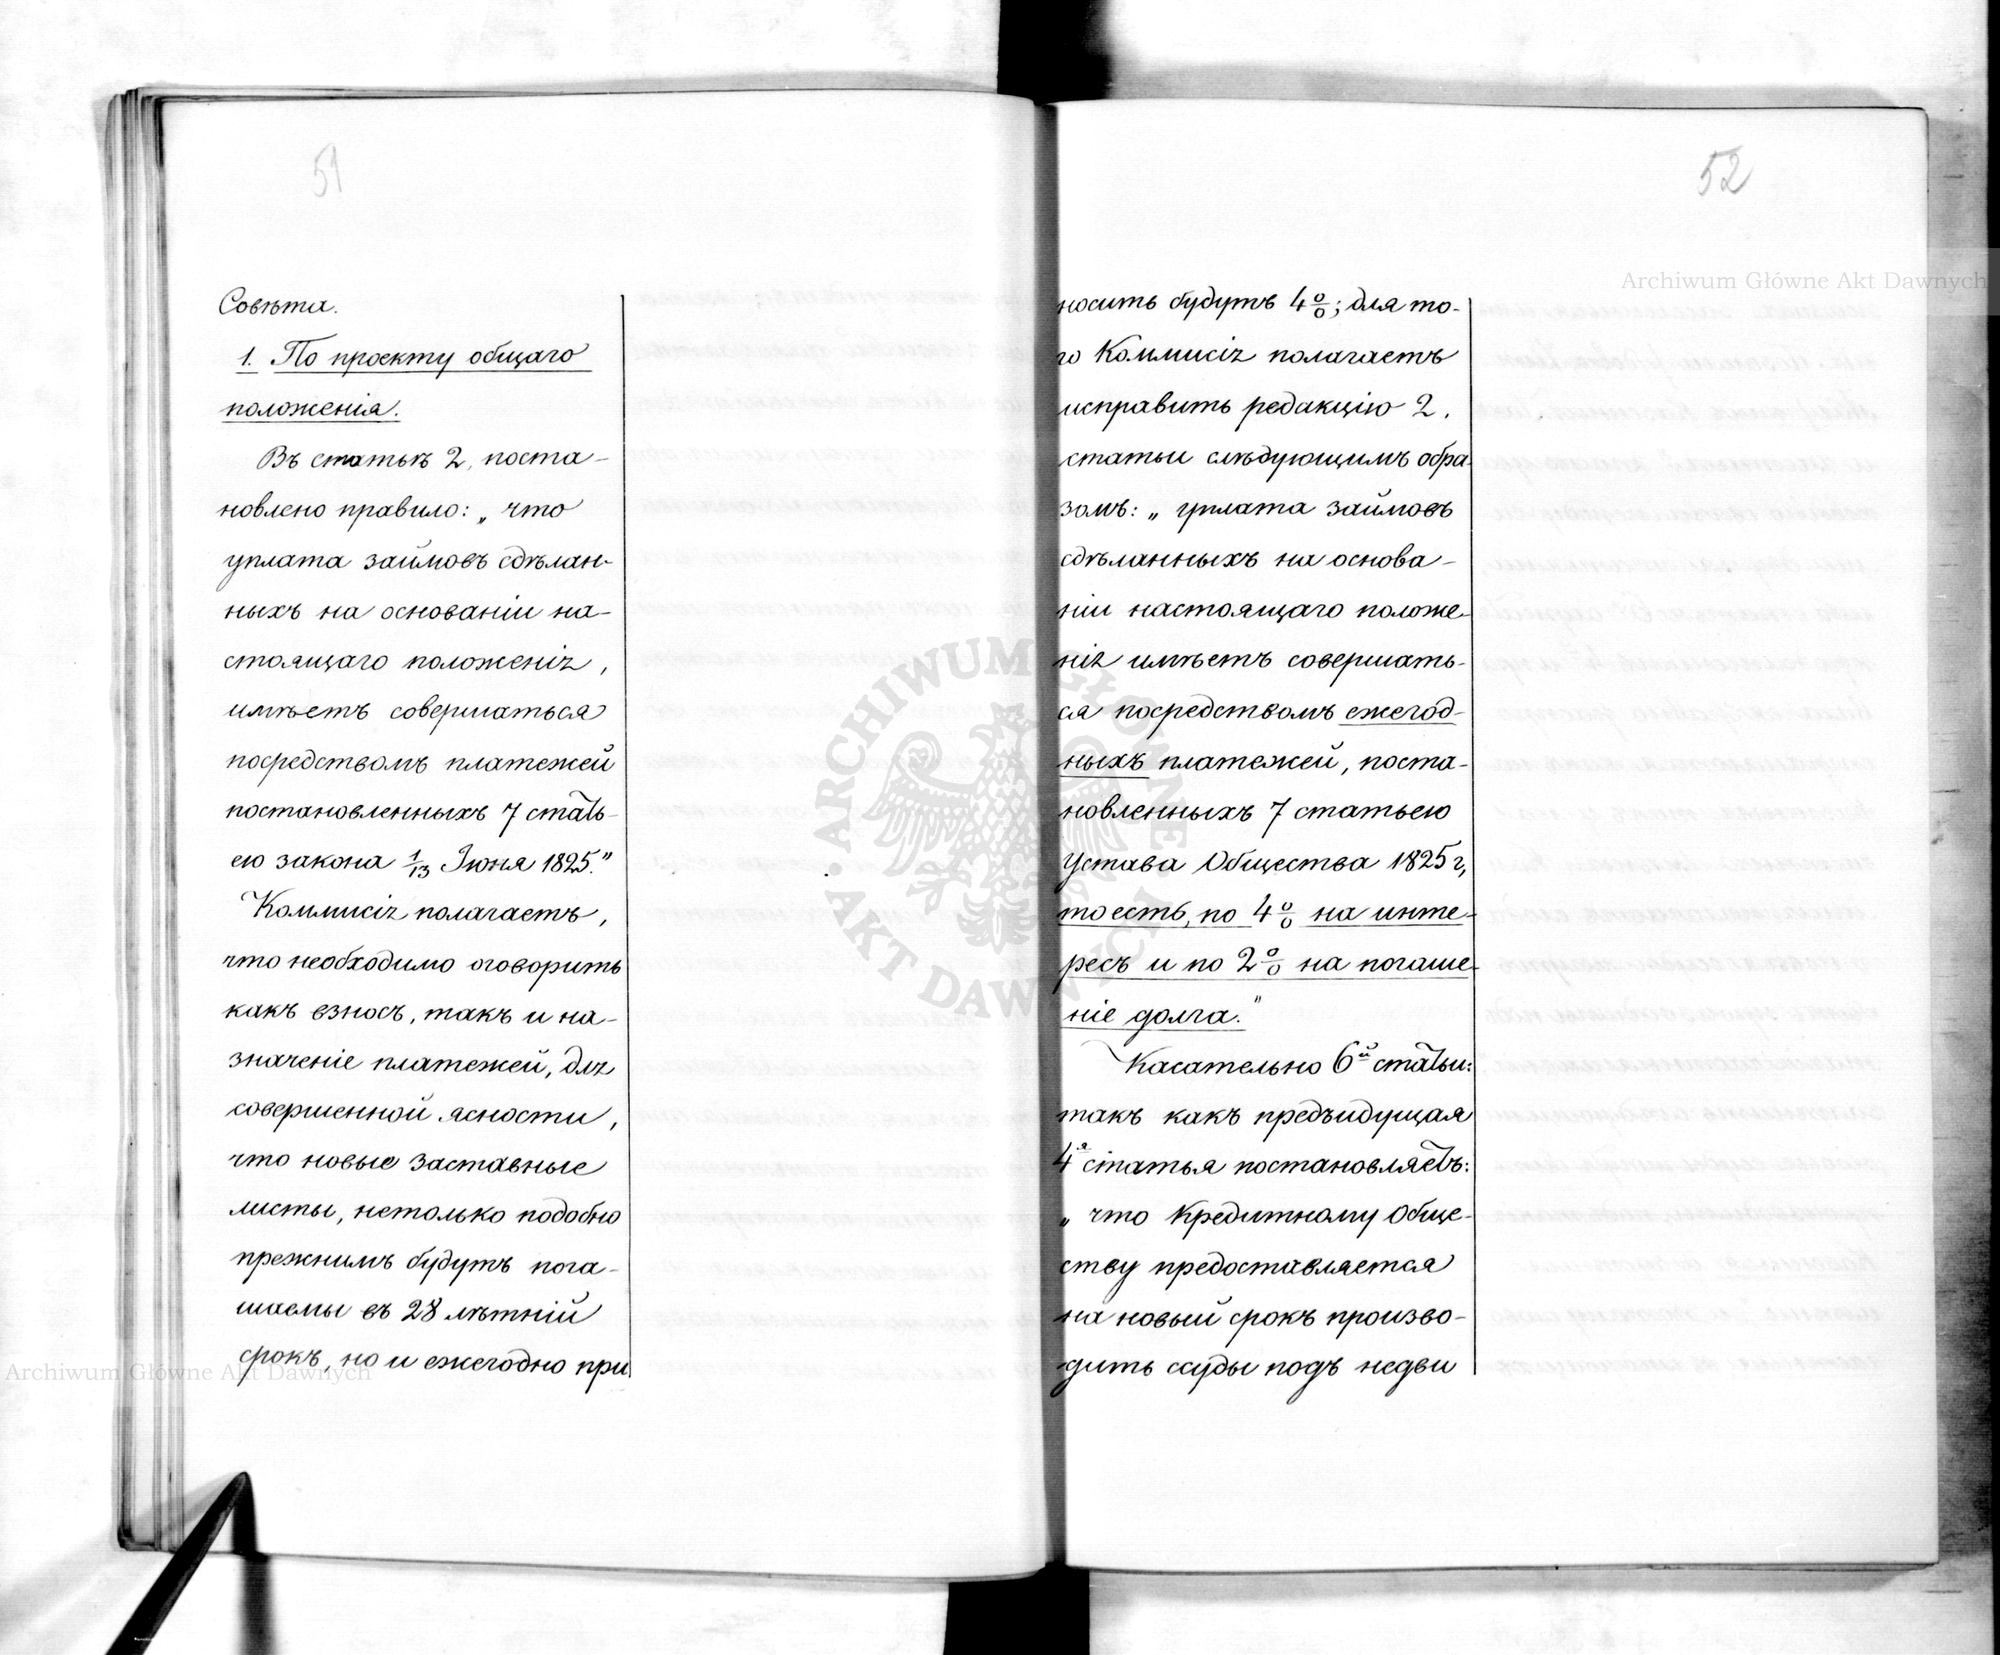 51
Совѣта.
1. По проекту общаго
положенія.
Въ статьѣ 2, поста-
новлено правило: „что
уплата займовъ сдѣлан-
ныхъ на основаніи на-
стоящаго положенія,
имѣетъ совершаться
посредствомъ платежей
постановленныхъ 7 стать-
ею закона 1/13 Іюня 1825."
Коммисія полагаетъ,
что необходимо оговорить
какъ взносъ, такъ и на-
значеніе платежей, для
совершенной ясности,
что новые заставные
листы, нетолько подобно
прежнимъ будутъ пога-
шаемы въ 28 лѣтній
срокъ, но и ежегодно при
52
носить будутъ 4%; для то-
го Коммисія полагаетъ
исправить редакцію 2.
статьи слѣдующимъ обра-
зомъ: „уплата займовъ
сдѣланныхъ на основа-
ніи настоящаго положе-
нія имѣетъ совершать-
ся посредствомъ ежегод-
ныхъ платежей, поста-
новленныхъ 7 статьею
Устава Общества 1825 г,
то есть, по 4% на инте-
ресъ и по 2% на погаше-
ніе долга."
Касательно 6й статьи:
такъ какъ предъидущая
4я статья постановляетъ:
„что Кредитному Обще-
ству предоставляется
на новый срокъ произво-
дить ссуды подъ недви
Archiwum Główne Akt Dawnych
Archiwum Główne Akt Dawnych
ARCHIWUM GŁÓWNE AKT DAWNYCH